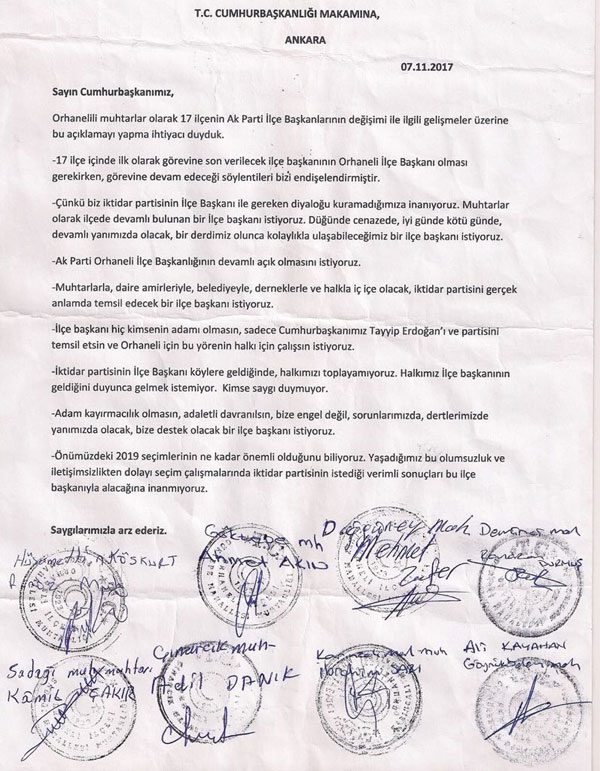 T.C. CUMHURBAŞKANLIĞI MAKAMINA,
ANKARA
07.11.2017
Sayın Cumhurbaşkanımız,
Orhanelili muhtarlar olarak 17 ilçenin Ak Parti İlçe Başkanlarının değişimi ile ilgili gelişmeler üzerine
bu açıklamayı yapma ihtiyacı duyduk.
-17 ilçe içinde ilk olarak görevine son verilecek ilçe başkanının Orhaneli İlçe Başkanı olması
gerekirken, görevine devam edeceği söylentileri bizi endişelendirmiştir.
-Çünkü biz iktidar partisinin İlçe Başkanı ile gereken diyaloğu kuramadığımıza inanıyoruz. Muhtarlar
olarak ilçede devamlı bulunan bir İlçe başkanı istiyoruz. Düğünde cenazede, iyi günde kötü günde,
devamlı yanımızda olacak, bir derdimiz olunca kolaylıkla ulaşabileceğimiz bir ilçe başkanı istiyoruz.
-Ak Parti Orhaneli İlçe Başkanlığının devamlı açık olmasını istiyoruz.
-Muhtarlarla, daire amirleriyle, belediyeyle, derneklerle ve halkla iç içe olacak, iktidar partisini gerçek
anlamda temsil edecek bir ilçe başkanı istiyoruz.
-İlçe başkanı hiç kimsenin adamı olmasın, sadece Cumhurbaşkanımız Tayyip Erdoğan'ı ve partisini
temsil etsin ve Orhaneli için bu yörenin halkı için çalışsın istiyoruz.
-İktidar partisinin İlçe Başkanı köylere geldiğinde, halkımızı toplayamıyoruz. Halkımız İlçe başkanının
geldiğini duyunca gelmek istemiyor. Kimse saygı duymuyor.
-Adam kayırmacılık olmasın, adaletli davranılsın, bize engel değil, sorunlarımızda, dertlerimizde
yanımızda olacak, bize destek olacak bir ilçe başkanı istiyoruz.
-Önümüzdeki 2019 seçimlerinin ne kadar önemli olduğunu biliyoruz. Yaşadığımız bu olumsuzluk ve
iletişimsizlikten dolayı seçim çalışmalarında iktidar partisinin istediği verimli sonuçları bu ilçe
başkanıyla alacağına inanmıyoruz.
Saygılarımızla arz ederiz.
AKÖSKURT
mh
Ahmet AKIN
mah
Mehmet
mah
DURMUŞ
Sadağı mah muhtarı
Kâmil ÇAKIR
Çınarcık muh-
Adil DANIK
mah muh
İbrahim SARI
Ali KAYAHAN
mah